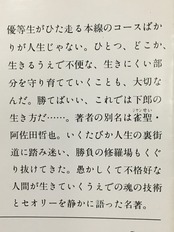 優等生がひた走る本線のコースばか
りが人生じゃない。ひとつ、どこか、
生きるうえで不便な、生きにくい部
分を守り育てていくことも、大切な
んだ。勝てばいい、これでは下郎の
生き方だ……。著者の別名は雀聖・
阿佐田哲也。いくたびか人生の裏街
道に踏み迷い、勝負の修羅場もくぐ
り抜けてきた。愚かしくて不格好な
人間が生きていくうえでの魂の技術
とセオリーを静かに語った名著。